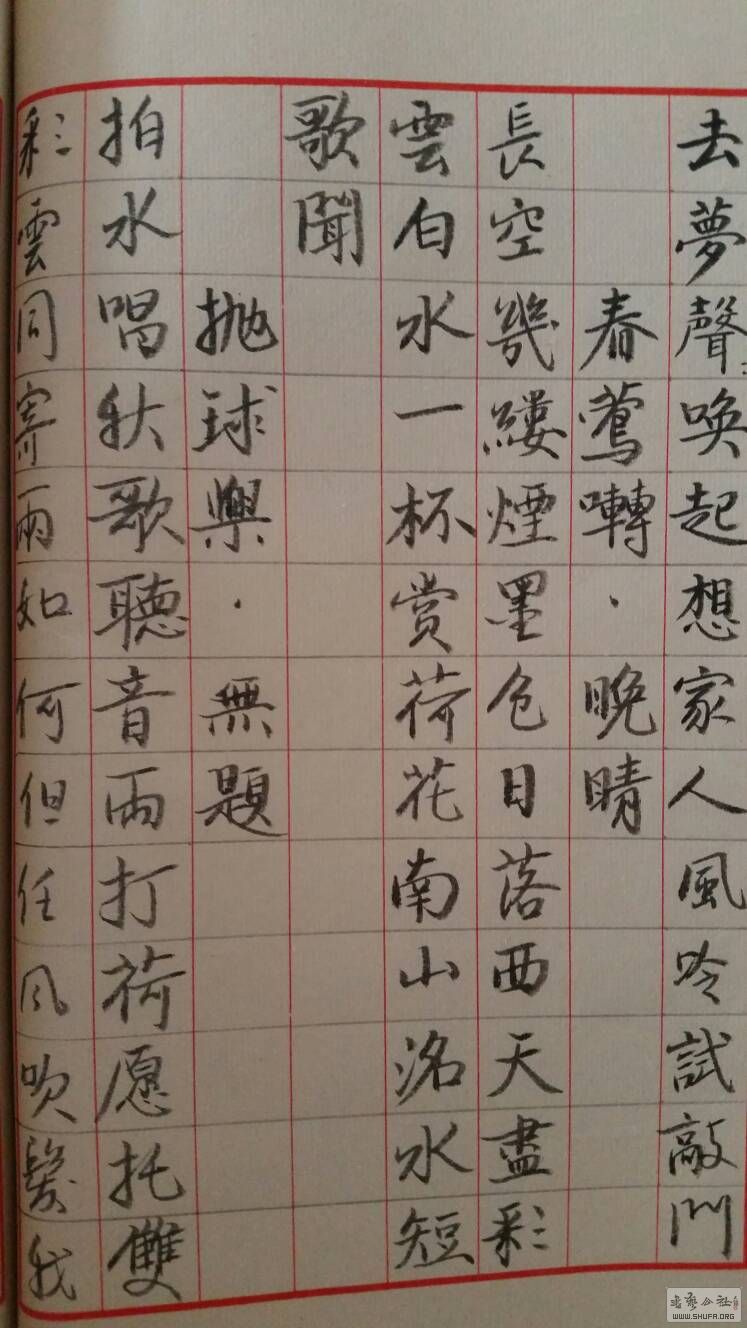 去夢聲喚起想家人風吟試敲門
春鶯囀·晚晴
長空幾縷煙墨色日落西天盡彩
雲白水一杯賞荷花南山洛水短
歌聞
拋球樂·無題
拍水唱秋歌聽音雨打荷愿托雙
彩雲同寄雨如何但任風吹髮我
WWW.SHUFA.ORG